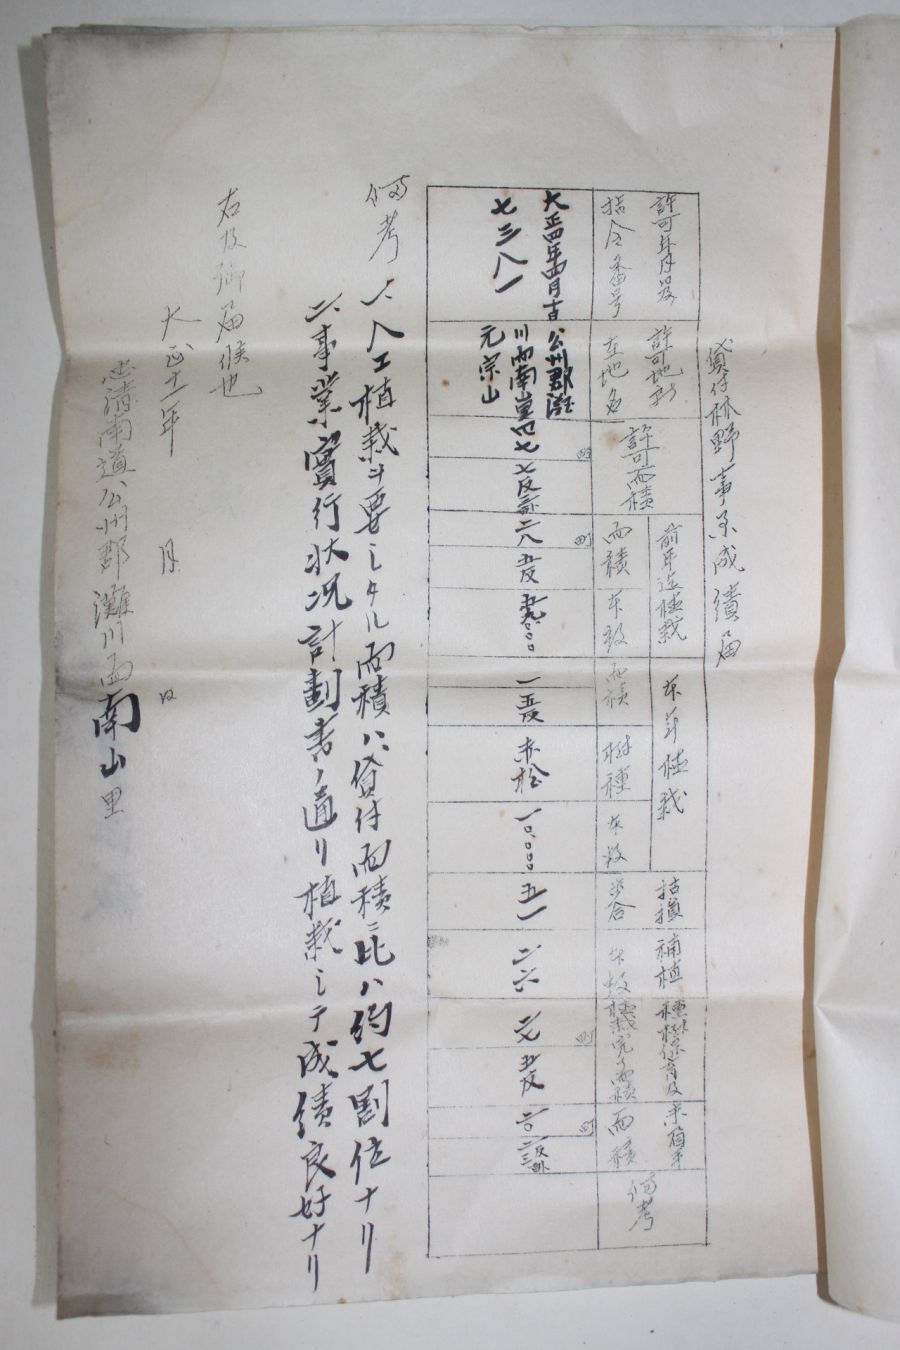 貸付林野事業成績届
許可年月日及
指令番号
許可地所
在地名
許可面積
前年迄植栽
面積
本数
本年植栽
面積
樹種
本数
枯損
歩合
補植
本数
種樹保育及
植栽完了面積
未着手
面積
備考
大正四年四月
七三八一
公州郡灘
川面南山里
元宗山
町
四七
七反
町
二八
五反
一
五反
赤松
一〇、〇〇〇
五一
二六
町
五反
町
二〇
備考
一、人工植栽ヲ要シタル面積ハ貸付面積ニ比ハ約七割位ナリ
二、事業實行状况計劃書ノ通リ植栽シテ成績良好ナリ
右及御届候也
大正十一年 月 日
忠清南道公州郡灘川面南山里